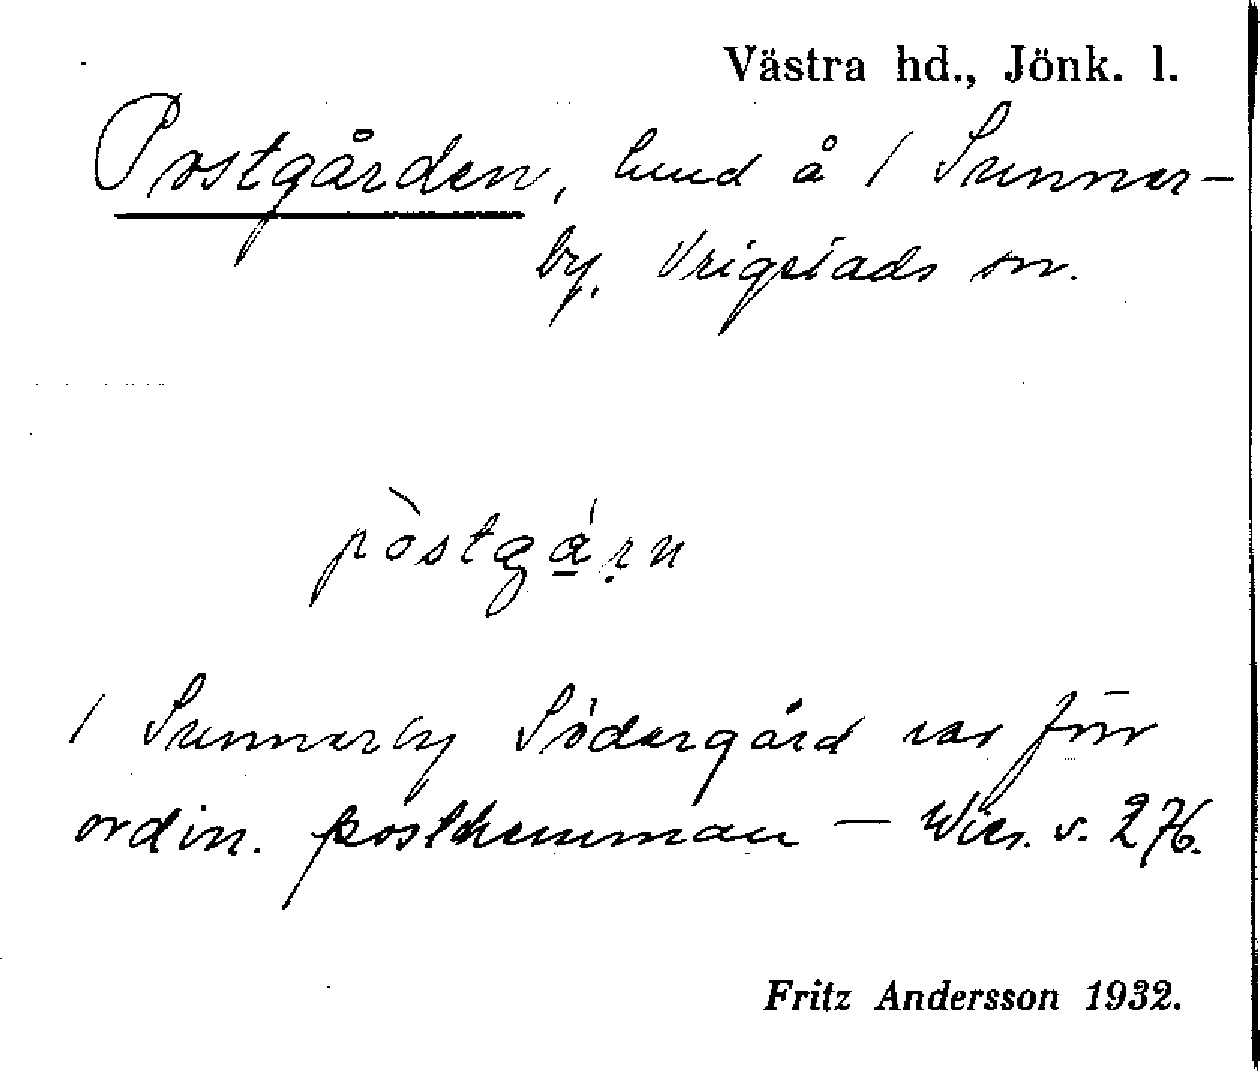 Västra hd., Jönk. l.
Postgården, hmd å 1 Sunner-
by, Vrigstads sn.
pòstgá̱ṛn
1 Sunnerby Södergård var förr
ordin. posthemman – Wies. s. 276.
Fritz Andersson 1932.